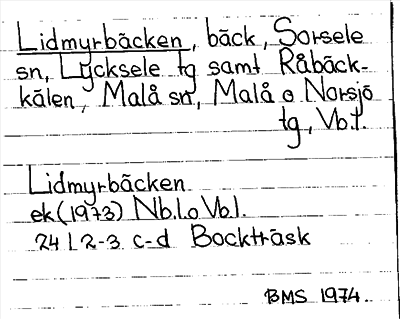 Lidmyrbäcken, bäck, Sorsele
sn, Lycksele tg samt Råbäck-
kälen, Malå sn, Malå o Norsjö
tg, Vb.l.
Lidmyrbäcken
ek (1973) Nb.l.o Vb.l.
24 I 2-3 c-d Bockträsk
BMS 1974.